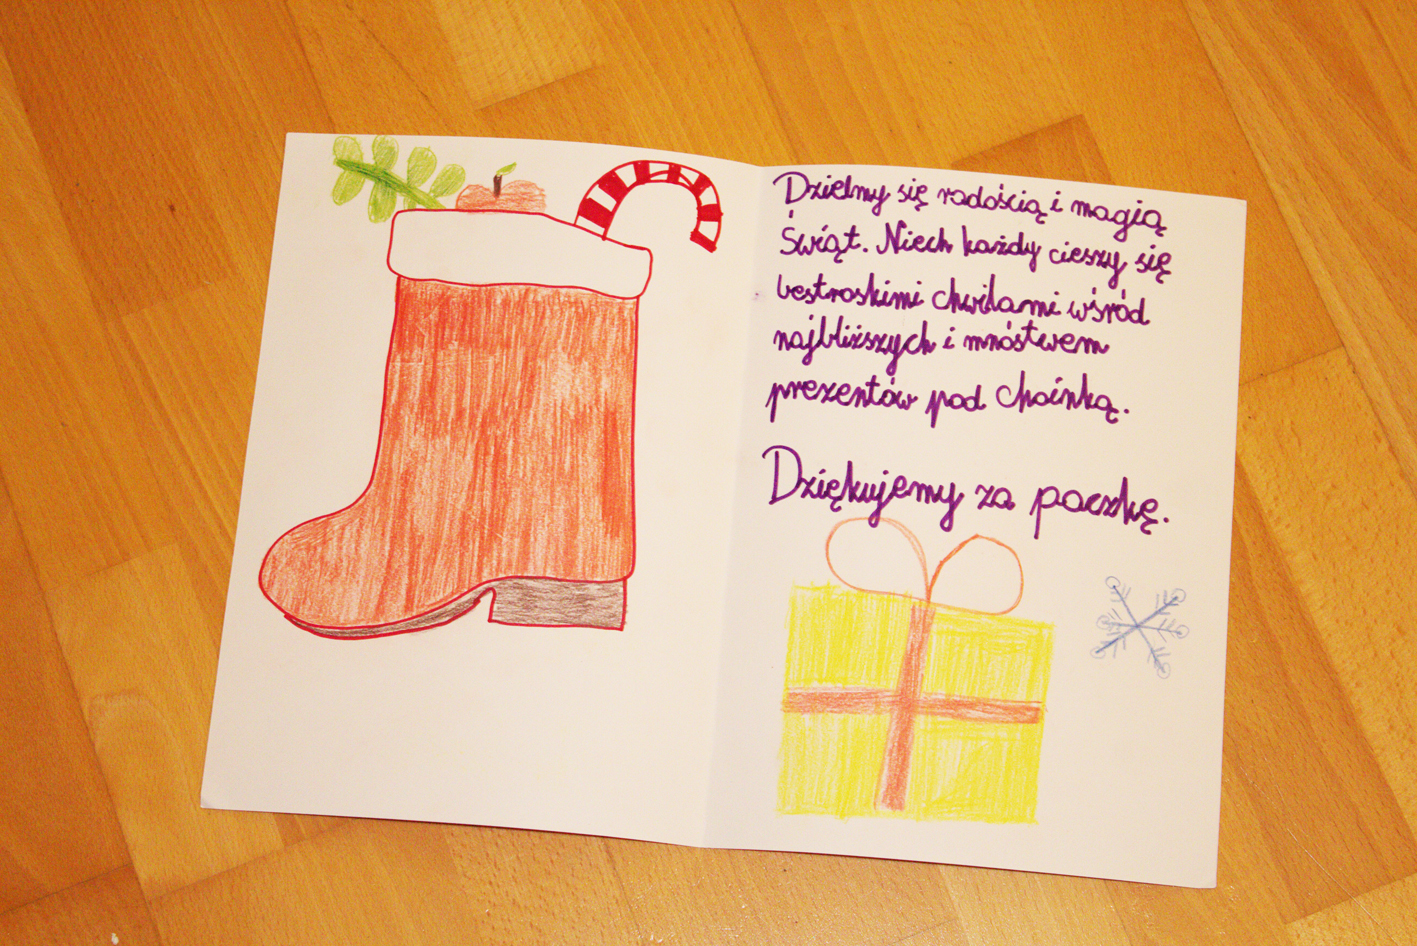 Dzielmy się radością i magią
Świąt. Niech każdy cieszy się
bestroskimi chwilami wśród
najbliższych i mnóstwem
prezentów pod choinką.
Dziękujemy za paczkę.